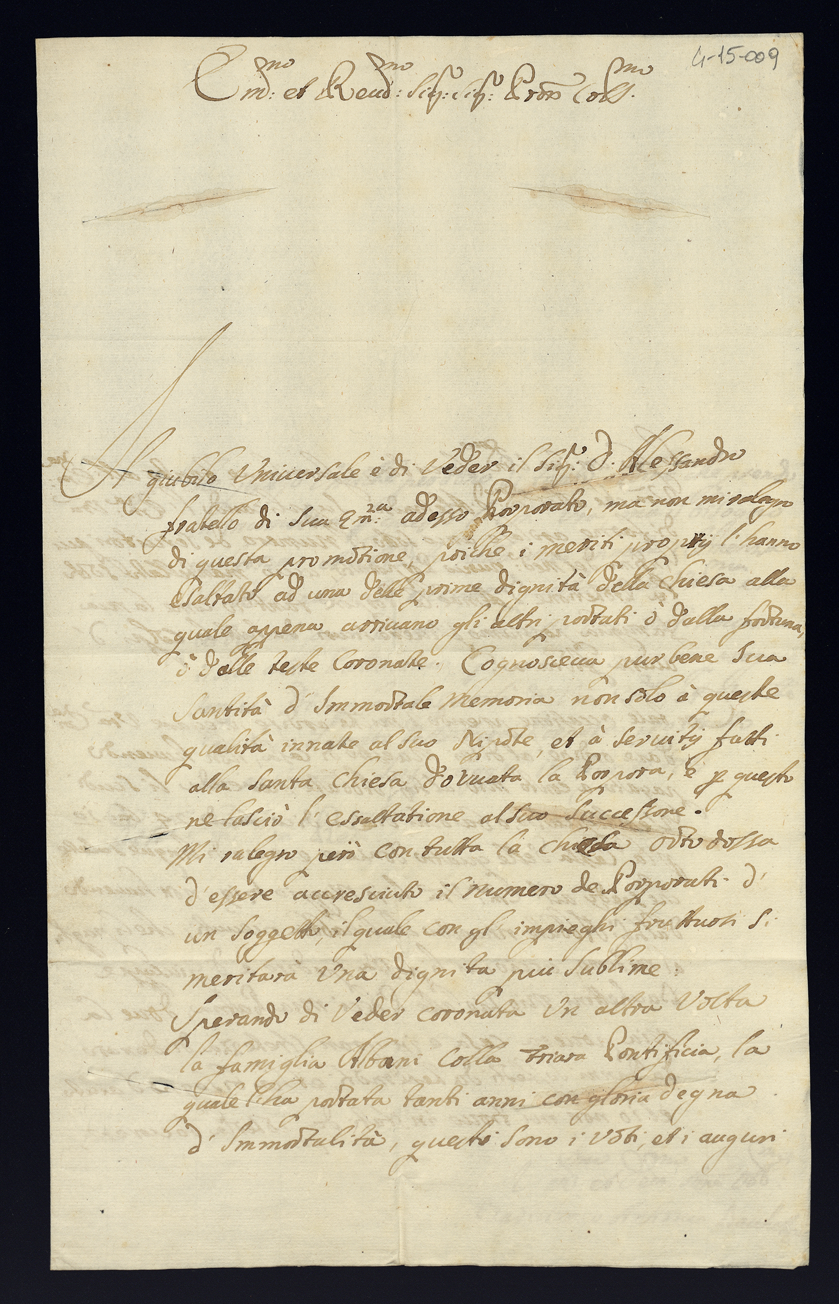 4-15-009
Em:mo et Reud:mo Sig:r Sig:r Pron Coll:mo
Il giubilo Vniuersale è di Veder il Sig:r D. Alessandro
fratello di Sua Em:za adesso Porporato, ma non mi ralegro
di questa promotione, poiche i meriti proprij l'hanno
esaltato ad una delle prime dignità della Chiesa alla
quale appena arriuano gli altri portati ò dalla fortuna,
ò dalle teste Coronate. Cognosceua pur bene Sua
Santità d'Immortale Memoria non solo à queste
qualità innate al suo Nipote, et à seruitij fatti
alla Santa Chiesa douuta la Porpora, è p questo
ne lasciò l'essaltatione al suo Successore.
Mi ralegro però con tutta la Chiesa ortodossa
d'essere accresciuto il numero de Porporati d'
un Soggetto, il quale con gl'impieghi fruttuosi si
meritarà Vna dignita più Sublime.
Sperando di Veder coronata Vn altra Volta
la famiglia Albani colla Triara Pontificia, la
quale l'ha portata tanti anni con gloria degna
d'Immortalità, questi sono i voti, et i auguri